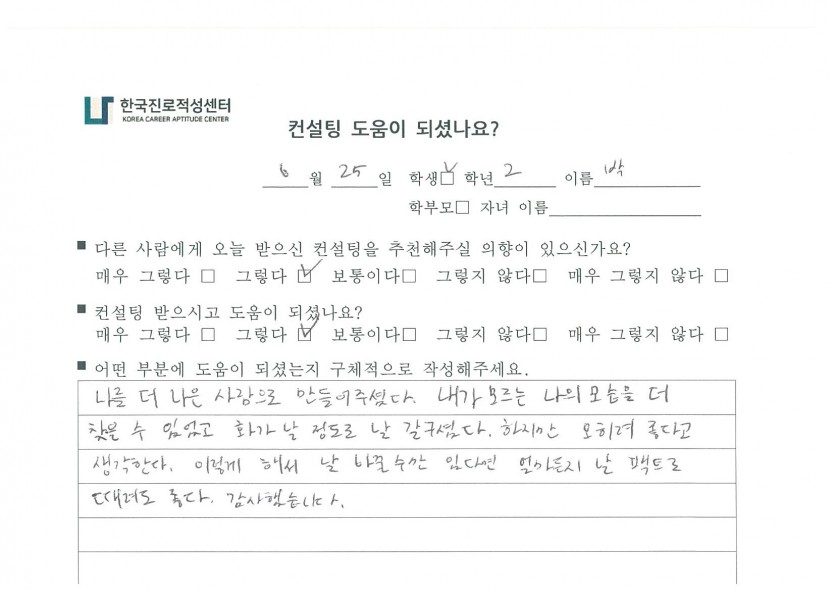 한국진로적성센터
KOREA CAREER APTITUDE CENTER
컨설팅 도움이 되셨나요?
6월 25일 학생☑ 학년 2 이름 박
학부모□ 자녀 이름
■ 다른 사람에게 오늘 받으신 컨설팅을 추천해주실 의향이 있으신가요?
매우 그렇다 □ 그렇다 ☑ 보통이다□ 그렇지 않다□ 매우 그렇지 않다 □
■ 컨설팅 받으시고 도움이 되셨나요?
매우 그렇다 □ 그렇다 ☑ 보통이다□ 그렇지 않다□ 매우 그렇지 않다 □
■ 어떤 부분에 도움이 되셨는지 구체적으로 작성해주세요.
나를 더 나은 사람으로 만들어주셨다. 내가 모르는 나의 모습을 더
찾을 수 있었고 화가 날 정도로 날 갈구셨다. 하지만 오히려 좋다고
생각한다. 이렇게 해서 날 바꿀수만 있다면 얼마든지 날 팩트로
때려도 좋다. 감사했습니다.